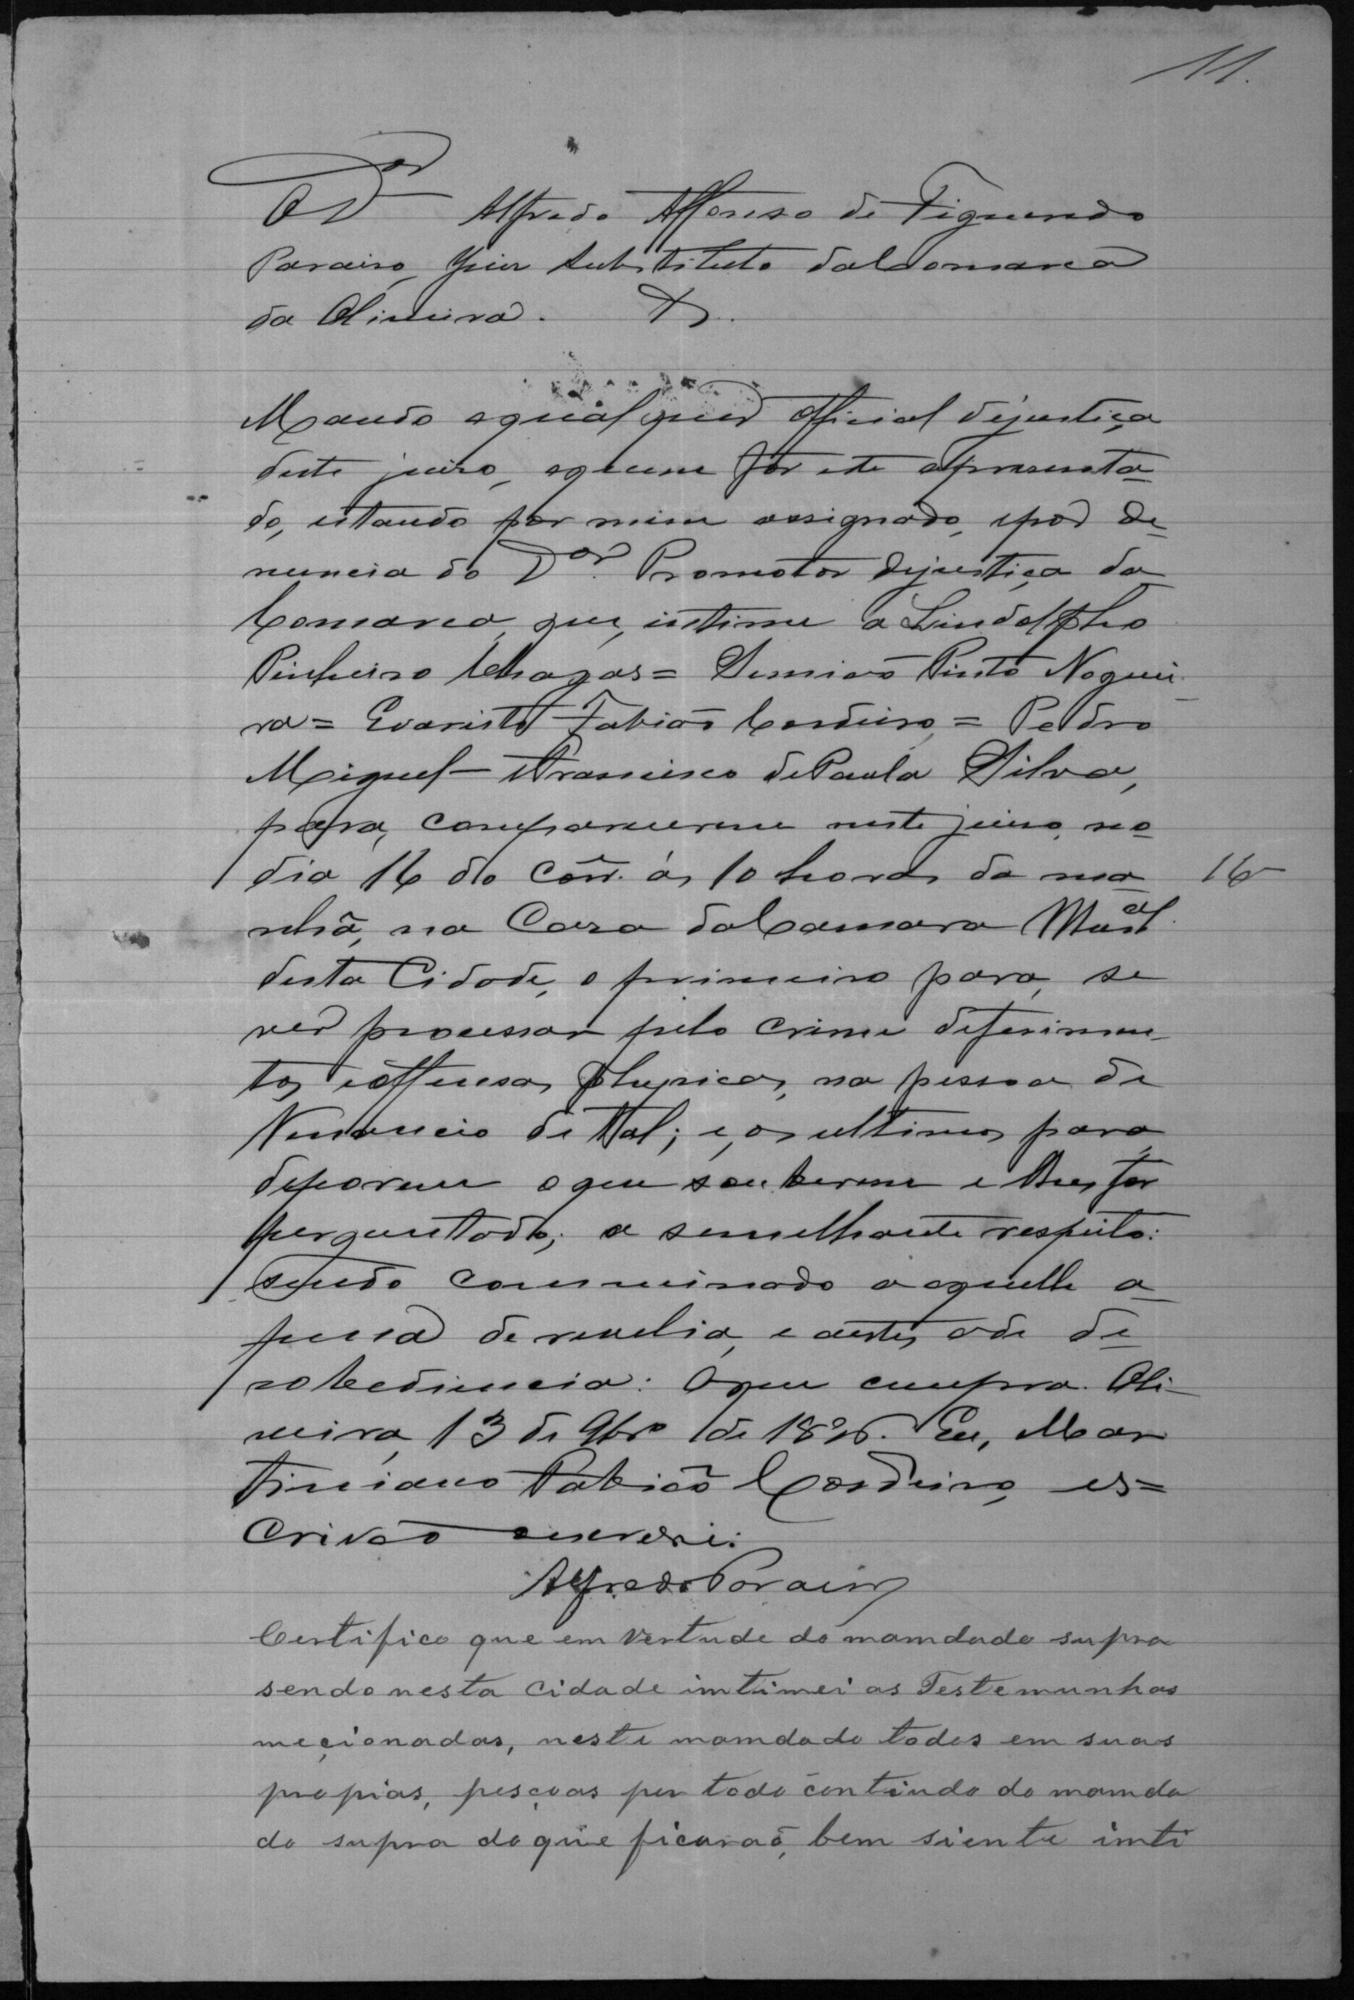 11.
O Dor Alfredo Affonso de Figueredo
Paraiso, Juiz Substituto da Comarca
da Oliveira. &.
Mando a qualquer Official de justiça
deste juizo, a quem fôr este apresenta-
do, estando por mim assignado, e por de-
nuncia do Dor. Promotor de justiça da
Comarca, que, intime a Lindolpho
Pinheiro Chagas = Simião Pinto Noguei-
ra = Evaristo Fabião Cordeiro = Pedro
Miguel - Francisco de Paula Silva,
para, comparecerem neste juizo, no
dia 16 do corr. ás 10 horas da ma- 16
nhã, na Casa da Camara Munal.
desta Cidade, o primeiro para, se
ver processar pelo crime de ferimen-
tos, e offensas physicas, na pessoa de
Venancio de Tal; e, os ultimos para
deporem o que souberem e lhes for
perguntado; a semelhante respeito:
sendo comminado a aquelle a
pena de revelia, e a estes a de de-
sobediencia: O que cumpra. Oli-
veira, 13 de 9bro de 1896. Eu, Mar
tiniano Fabião Cordeiro, es=
crivão escrevi:
Alfredo Paraiso
Certifico que em vertude do mamdado supra
sendo nesta cidade imtimei as Testemunhas
meçionadas, neste mamdado todos em suas
propias, pesçoas por todo contiudo do mamda
do supra do que ficaraõ, bem siente imti